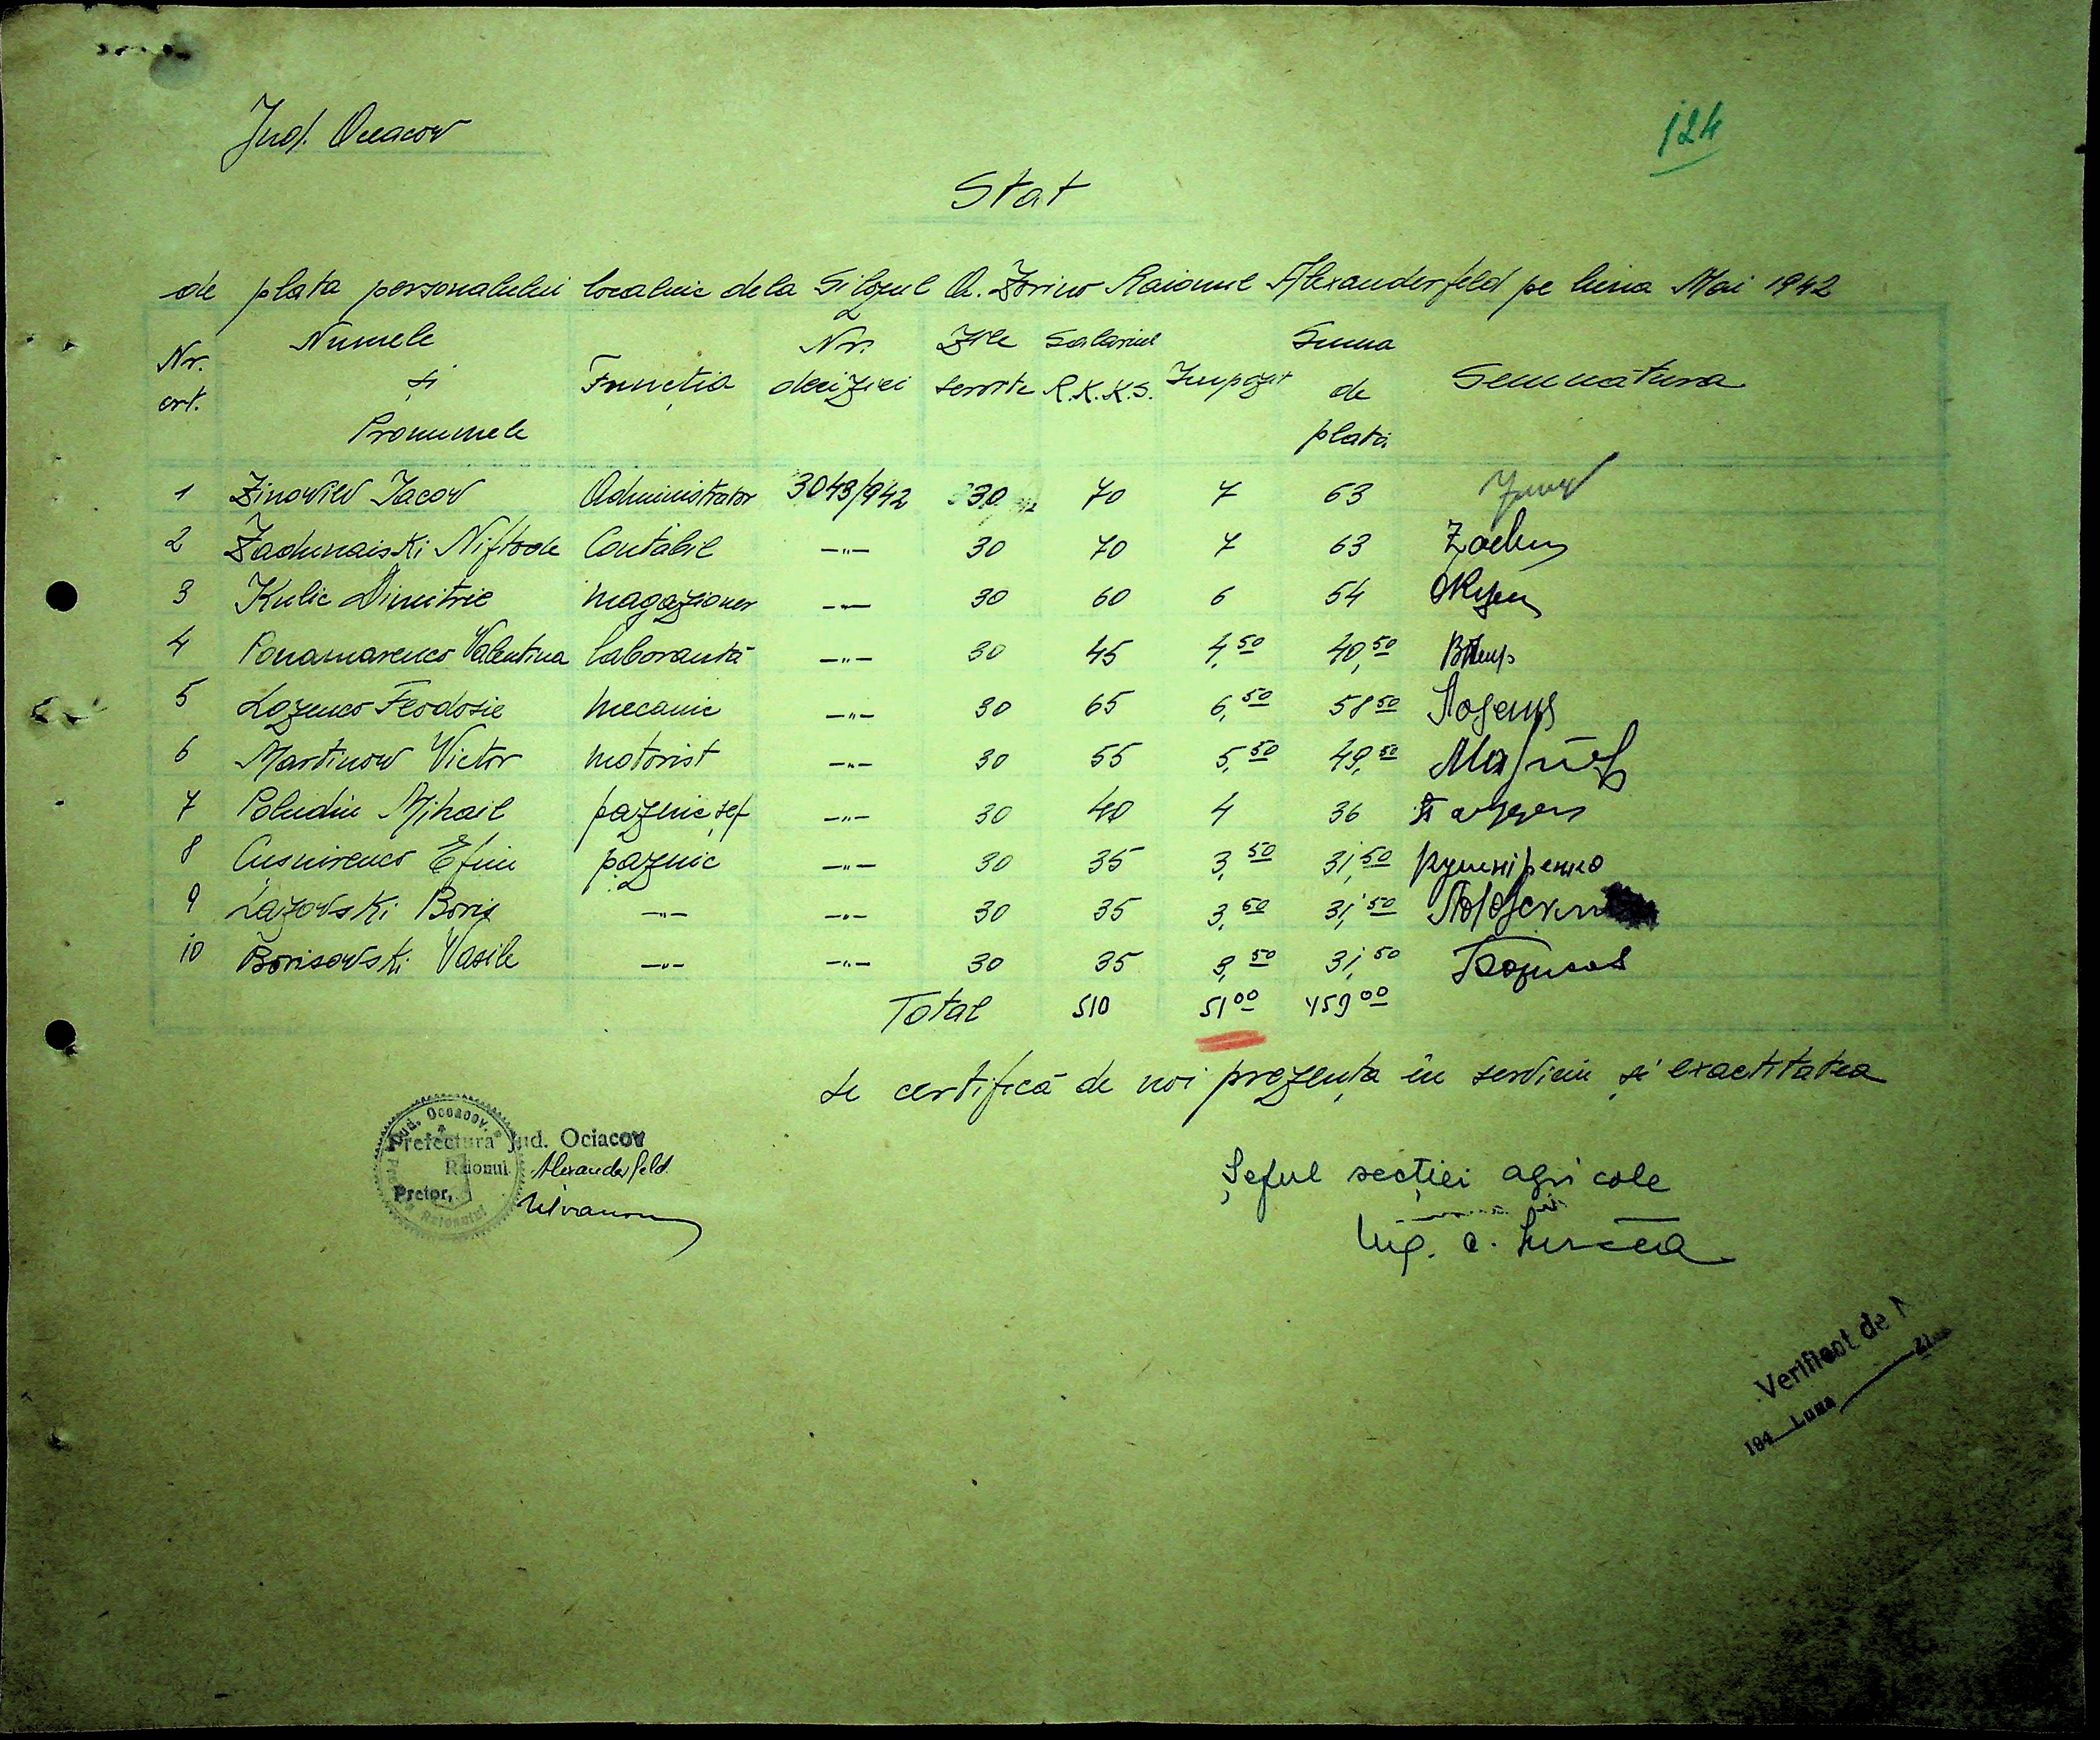 Jud. Oceacov
124
Stat
de plata personalului localnic dela Silozul A. Zorino Raionul Alexanderfeld pe luna Mai 1942
Nr. crt. Numele și Pronumele Funcția Nr. deciziei Zile servite Salariul R.K.K.S. Impozit Suma de plată Semnătura
1 Zinowiew Jacow Administrator 3043/942 30 70 7 63
2 Zadunaiski Niftode Contabil —"— 30 70 7 63 Zadun
3 Kulic Dimitrie magazioner —"— 30 60 6 54
4 Ponamarenco Valentina laborantă —"— 30 45 4,50 40,50
5 Lozenco Feodosie mecanic —"— 30 65 6,50 58 50
6 Martinow Victor motorist —"— 30 55 5,50 49,50
7 Poludin Mihail paznic șef —"— 30 40 4 36
8 Cușnirenco Efim paznic —"— 30 35 3,50 31,50 Кушніренко
9 Lazowski Boris —"— —"— 30 35 3,50 31,50
10 Borisowski Vasile —"— —"— 30 35 3,50 31,50
Total 510 51 00 459 00
Se certifică de noi prezența în serviciu și exactitatea
Prefectura Jud. Ociacov
Raionul Alexanderfeld
Pretor,
Șeful secției agricole
Ing. C. Mircea
Verificat de
194 Luna